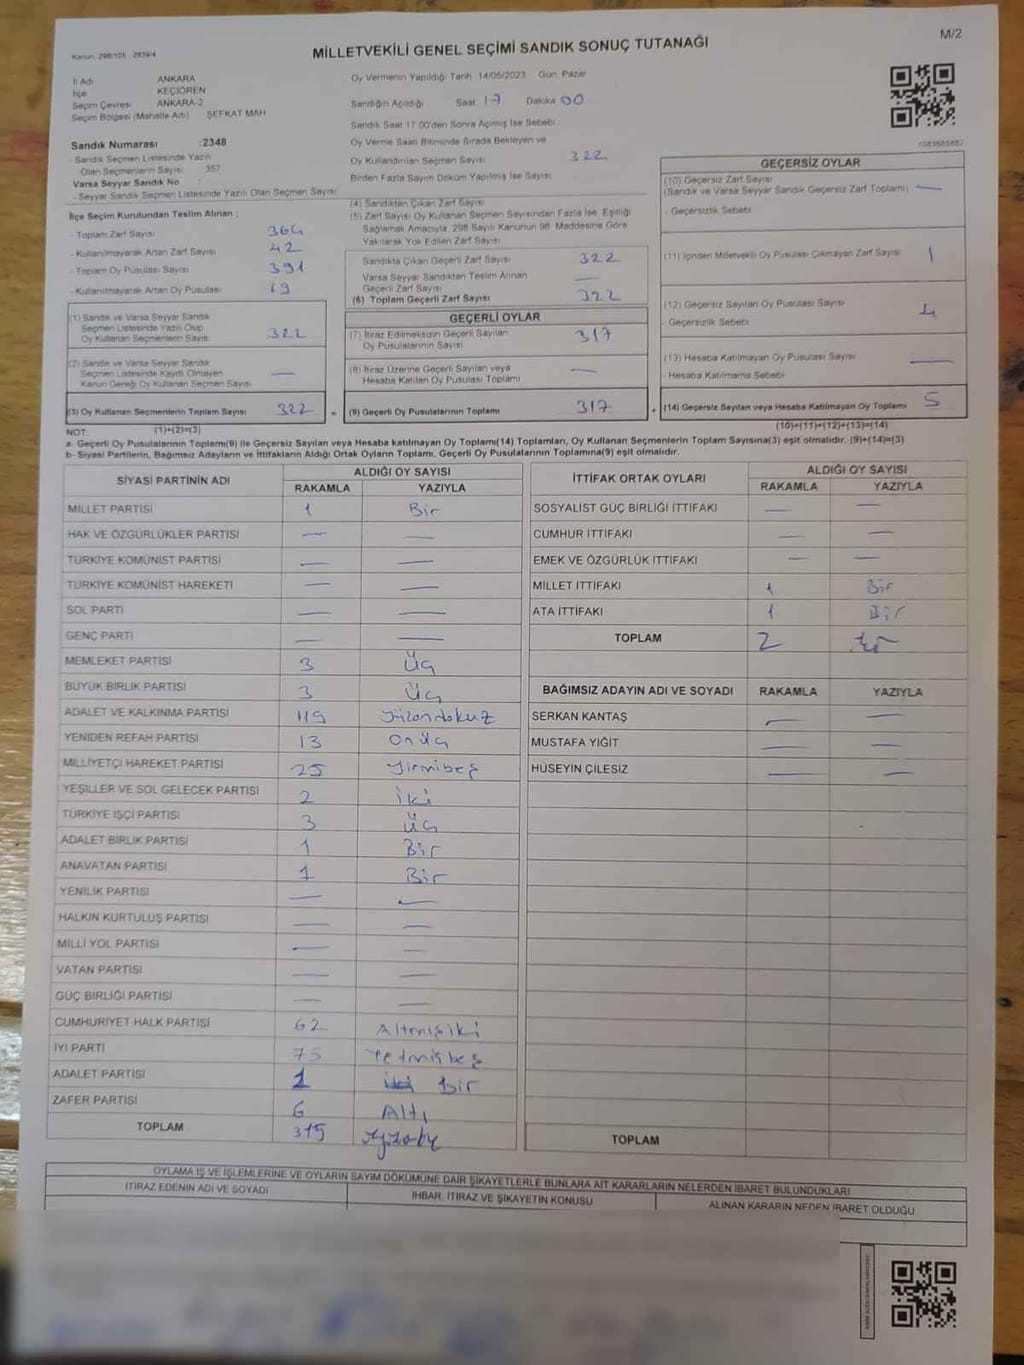 M/2
Kanun: 298/105 2839/4
MİLLETVEKİLİ GENEL SEÇİMİ SANDIK SONUÇ TUTANAĞI
İl Adı ANKARA
İlçe KEÇİÖREN
Seçim Çevresi ANKARA-2
Seçim Bölgesi (Mahalle Adı) ŞEFKAT MAH
Sandık Numarası :2348
- Sandık Seçmen Listesinde Yazılı
Olan Seçmenlerin Sayısı 357
Varsa Seyyar Sandık No :
- Seyyar Sandık Seçmen Listesinde Yazılı Olan Seçmen Sayısı
İlçe Seçim Kurulundan Teslim Alınan :
- Toplam Zarf Sayısı 364
- Kullanılmayarak Artan Zarf Sayısı 42
- Toplam Oy Pusulası Sayısı 391
- Kullanılmayarak Artan Oy Pusulası 69
(1) Sandık ve Varsa Seyyar Sandık
Seçmen Listesinde Yazılı Olup
Oy Kullanan Seçmenlerin Sayısı 322
(2) Sandık ve Varsa Seyyar Sandık
Seçmen Listesinde Kayıtlı Olmayan
Kanun Gereği Oy Kullanan Seçmen Sayısı —
(3) Oy Kullanan Seçmenlerin Toplam Sayısı 322
(1)+(2)=(3)
Oy Vermenin Yapıldığı Tarih 14/05/2023 Gün Pazar
Sandığın Açıldığı Saat 17 Dakika 00
Sandık Saat 17:00'den Sonra Açılmış İse Sebebi
Oy Verme Saati Bitiminde Sırada Bekleyen ve
Oy Kullandırılan Seçmen Sayısı 322
Birden Fazla Sayım Döküm Yapılmış İse Sayısı
(4) Sandıktan Çıkan Zarf Sayısı
(5) Zarf Sayısı Oy Kullanan Seçmen Sayısından Fazla İse, Eşitliği
Sağlamak Amacıyla 298 Sayılı Kanunun 98. Maddesine Göre
Yakılarak Yok Edilen Zarf Sayısı
Sandıkta Çıkan Geçerli Zarf Sayısı 322
Varsa Seyyar Sandıktan Teslim Alınan
Geçerli Zarf Sayısı —
(6) Toplam Geçerli Zarf Sayısı 322
GEÇERLİ OYLAR
(7) İtiraz Edilmeksizin Geçerli Sayılan
Oy Pusulalarının Sayısı 317
(8) İtiraz Üzerine Geçerli Sayılan veya
Hesaba Katılan Oy Pusulası Toplamı —
= (9) Geçerli Oy Pusulalarının Toplamı 317
1083685882
GEÇERSİZ OYLAR
(10) Geçersiz Zarf Sayısı
(Sandık ve Varsa Seyyar Sandık Geçersiz Zarf Toplamı) —
- Geçersizlik Sebebi
(11) İçinden Milletvekili Oy Pusulası Çıkmayan Zarf Sayısı 1
(12) Geçersiz Sayılan Oy Pusulası Sayısı 4
- Geçersizlik Sebebi
(13) Hesaba Katılmayan Oy Pusulası Sayısı —
- Hesaba Katılmama Sebebi
+ (14) Geçersiz Sayılan veya Hesaba Katılmayan Oy Toplamı 5
(10)+(11)+(12)+(13)=(14)
NOT:
a- Geçerli Oy Pusulalarının Toplamı(9) ile Geçersiz Sayılan veya Hesaba katılmayan Oy Toplamı(14) Toplamları, Oy Kullanan Seçmenlerin Toplam Sayısına(3) eşit olmalıdır. (9)+(14)=(3)
b- Siyasi Partilerin, Bağımsız Adayların ve İttifakların Aldığı Ortak Oyların Toplamı, Geçerli Oy Pusulalarının Toplamına(9) eşit olmalıdır.
SİYASİ PARTİNİN ADI ALDIĞI OY SAYISI
RAKAMLA YAZIYLA
MİLLET PARTİSİ 1 Bir
HAK VE ÖZGÜRLÜKLER PARTİSİ — —
TÜRKİYE KOMÜNİST PARTİSİ — —
TÜRKİYE KOMÜNİST HAREKETİ — —
SOL PARTİ — —
GENÇ PARTİ — —
MEMLEKET PARTİSİ 3 Üç
BÜYÜK BİRLİK PARTİSİ 3 Üç
ADALET VE KALKINMA PARTİSİ 119 Yüzondokuz
YENİDEN REFAH PARTİSİ 13 Onüç
MİLLİYETÇİ HAREKET PARTİSİ 25 Yirmibeş
YEŞİLLER VE SOL GELECEK PARTİSİ 2 İki
TÜRKİYE İŞÇİ PARTİSİ 3 Üç
ADALET BİRLİK PARTİSİ 1 Bir
ANAVATAN PARTİSİ 1 Bir
YENİLİK PARTİSİ — —
HALKIN KURTULUŞ PARTİSİ — —
MİLLİ YOL PARTİSİ — —
VATAN PARTİSİ — —
GÜÇ BİRLİĞİ PARTİSİ — —
CUMHURİYET HALK PARTİSİ 62 Altmışiki
İYİ PARTİ 75 Yetmişbeş
ADALET PARTİSİ 1 Bir
ZAFER PARTİSİ 6 Altı
TOPLAM 315
İTTİFAK ORTAK OYLARI ALDIĞI OY SAYISI
RAKAMLA YAZIYLA
SOSYALİST GÜÇ BİRLİĞİ İTTİFAKI — —
CUMHUR İTTİFAKI — —
EMEK VE ÖZGÜRLÜK İTTİFAKI — —
MİLLET İTTİFAKI 1 Bir
ATA İTTİFAKI 1 Bir
TOPLAM 2
BAĞIMSIZ ADAYIN ADI VE SOYADI RAKAMLA YAZIYLA
SERKAN KANTAŞ — —
MUSTAFA YİĞİT — —
HÜSEYİN ÇİLESİZ — —
TOPLAM
OYLAMA İŞ VE İŞLEMLERİNE VE OYLARIN SAYIM DÖKÜMÜNE DAİR ŞİKAYETLERLE BUNLARA AİT KARARLARIN NELERDEN İBARET BULUNDUKLARI
İTİRAZ EDENİN ADI VE SOYADI İHBAR, İTİRAZ VE ŞİKAYETİN KONUSU ALINAN KARARIN NEDEN İBARET OLDUĞU